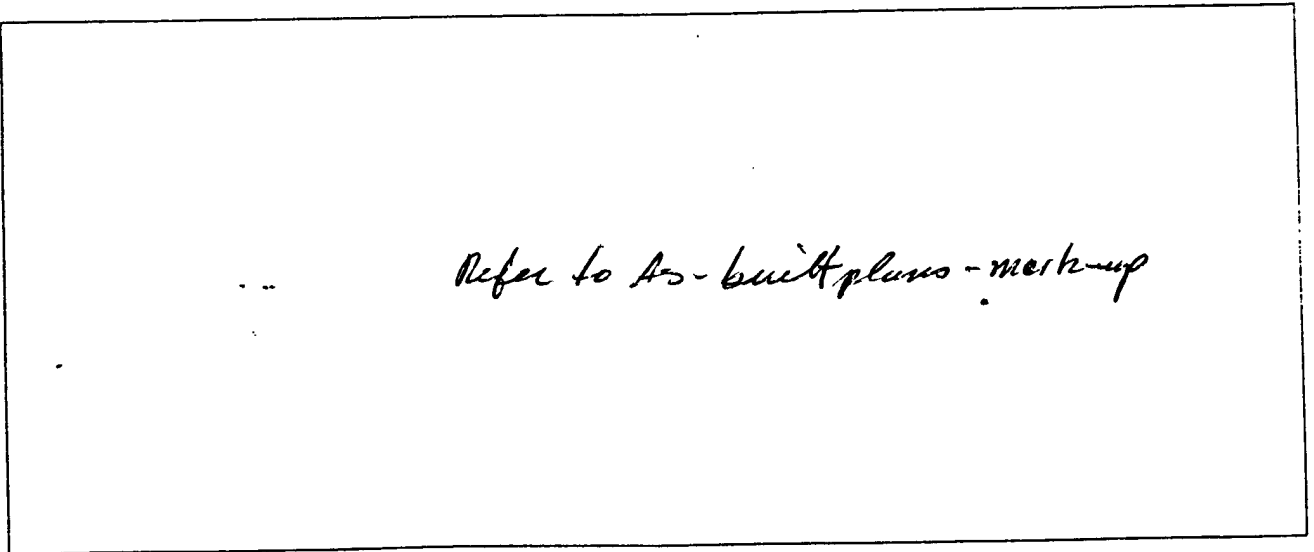 Refer to As-built plans - mark-up